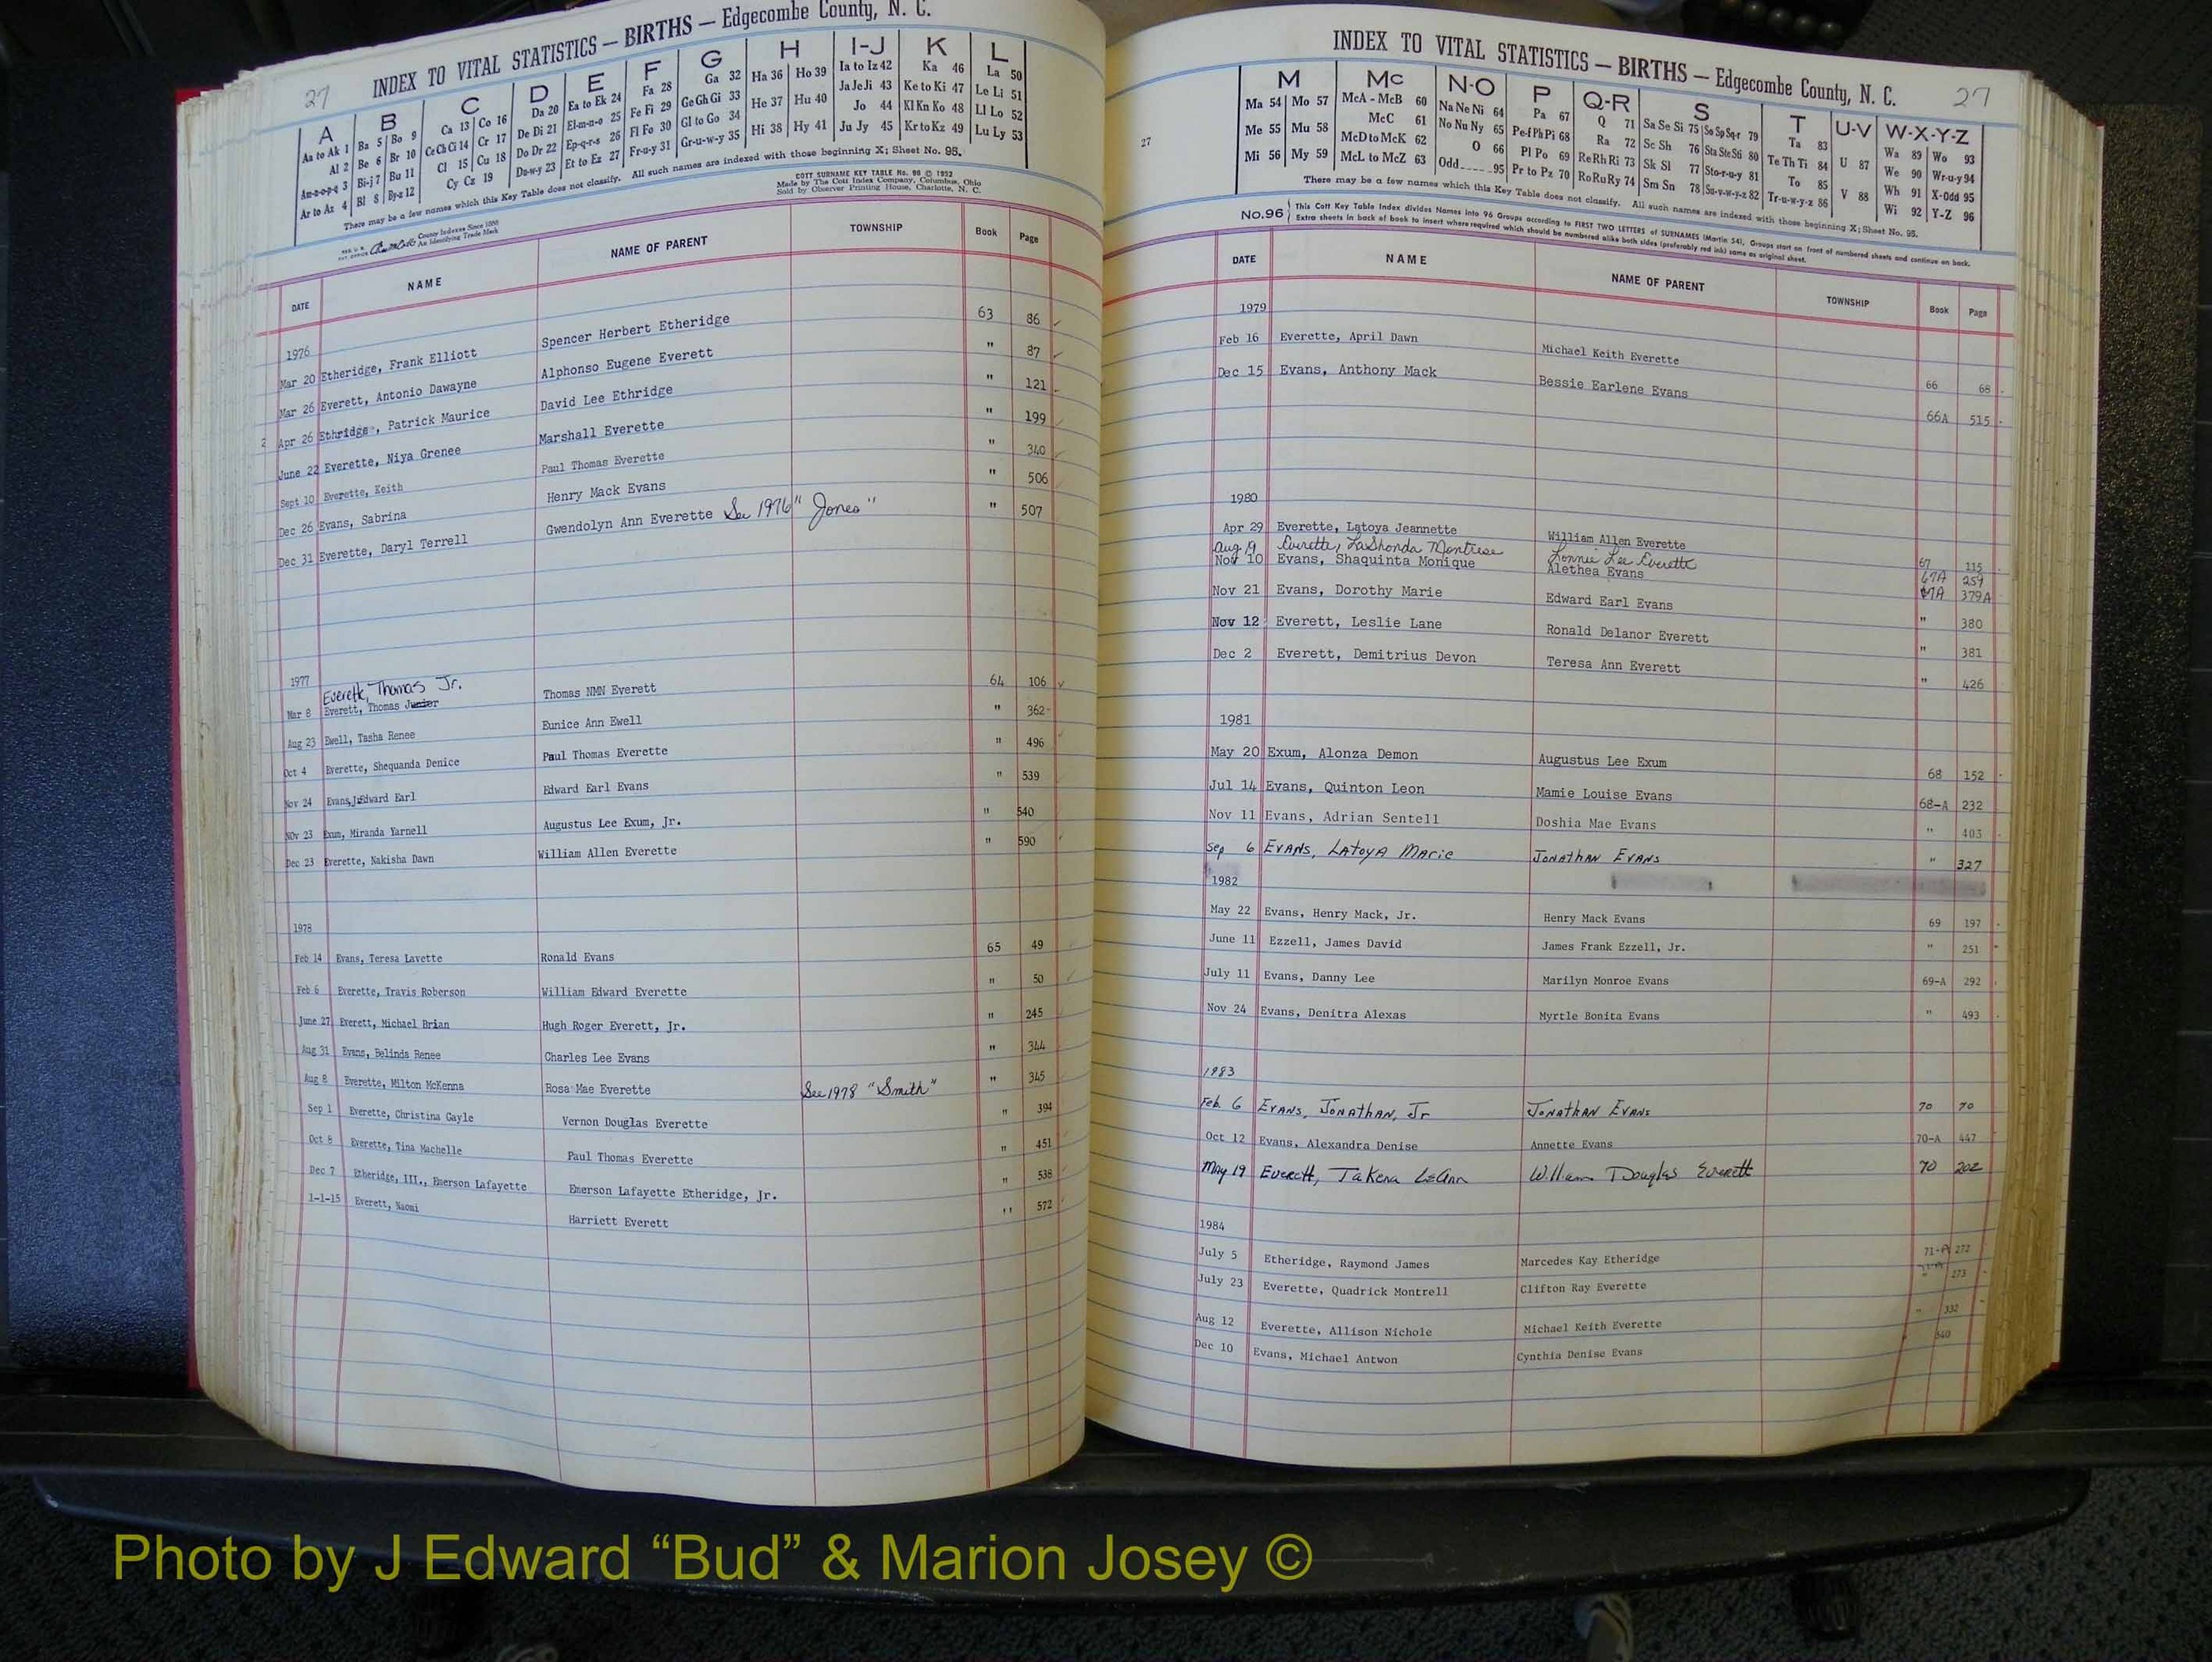 27 INDEX TO VITAL STATISTICS — BIRTHS — Edgecombe County, N. C.
A B C D E F G H I-J K L
Aa to Ak 1 Ba 5 Bo 9 Ca 13 Co 16 Da 20 Ea to Ek 24 Fa 28 Ga 32 Ha 36 Ho 39 Ia to Iz 42 Ka 46 La 50
Al 2 Be 6 Br 10 Ce Ch Ci 14 Cr 17 De Di 21 El-m-n-o 25 Fe Fi 29 Ge Gh Gi 33 He 37 Hu 40 Ja Je Ji 43 Ke to Ki 47 Le Li 51
Am-n-o-p-q 3 Bi-j 7 Bu 11 Cl 15 Cu 18 Do Dr 22 Ep-q-r-s 26 Fl Fo 30 Gl to Go 34 Hi 38 Hy 41 Jo 44 Kl Kn Ko 48 Ll Lo 52
Ar to Az 4 Bl 8 By-z 12 Cy Cz 19 Du-w-y 23 Et to Ez 27 Fr-u-y 31 Gr-u-w-y 35 Ju Jy 45 Kr to Kz 49 Lu Ly 53
There may be a few names which this Key Table does not classify. All such names are indexed with those beginning X; Sheet No. 95.
COTT SURNAME KEY TABLE No. 96 © 1952
Made by The Cott Index Company, Columbus, Ohio
Sold by Observer Printing House, Charlotte, N. C.
County Indexes Since 1888
An Identifying Trade Mark
DATE NAME NAME OF PARENT TOWNSHIP Book Page
1976
Mar 20 Etheridge, Frank Elliott Spencer Herbert Etheridge 63 86
Mar 26 Everett, Antonio Dawayne Alphonso Eugene Everett " 87
2 Apr 26 Ethridge, Patrick Maurice David Lee Ethridge " 121
June 22 Everette, Niya Grenee Marshall Everette " 199
Sept 10 Everette, Keith Paul Thomas Everette " 340
Dec 26 Evans, Sabrina Henry Mack Evans " 506
Dec 31 Everette, Daryl Terrell Gwendolyn Ann Everette See 1976 "Jones" " 507
1977
Everett, Thomas Jr.
Mar 8 Everett, Thomas Junior Thomas NMN Everett 64 106
Aug 23 Ewell, Tasha Renee Eunice Ann Ewell " 362
Oct 4 Everette, Shequanda Denice Paul Thomas Everette " 496
Nov 24 Evans, Edward Earl Edward Earl Evans " 539
NOv 23 Exum, Miranda Yarnell Augustus Lee Exum, Jr. " 540
Dec 23 Everette, Nakisha Dawn William Allen Everette " 590
1978
Feb 14 Evans, Teresa Lavette Ronald Evans 65 49
Feb 6 Everette, Travis Roberson William Edward Everette " 50
June 27 Everett, Michael Brian Hugh Roger Everett, Jr. " 245
Aug 31 Evans, Belinda Renee Charles Lee Evans " 344
Aug 8 Everette, Milton McKenna Rosa Mae Everette See 1978 "Smith" " 345
Sep 1 Everette, Christina Gayle Vernon Douglas Everette " 394
Oct 8 Everette, Tina Machelle Paul Thomas Everette " 451
Dec 7 Etheridge, III., Emerson Lafayette Emerson Lafayette Etheridge, Jr. " 538
1-1-15 Everett, Naomi Harriett Everett " 572
27 INDEX TO VITAL STATISTICS — BIRTHS — Edgecombe County, N. C. 27
M Mc N-O P Q-R S T U-V W-X-Y-Z
Ma 54 Mo 57 McA - McB 60 Na Ne Ni 64 Pa 67 Q 71 Sa Se Si 75 So Sp Sq-r 79 Ta 83 U 87 Wa 89 Wo 93
Me 55 Mu 58 McC 61 No Nu Ny 65 Pe-f Ph Pi 68 Ra 72 Sc Sh 76 Sta Ste Sti 80 Te Th Ti 84 V 88 We 90 Wr-u-y 94
Mi 56 My 59 McD to McK 62 O 66 Pl Po 69 Re Rh Ri 73 Sk Sl 77 Sto-r-u-y 81 To 85 Wh 91 X-Odd 95
McL to McZ 63 Odd 95 Pr to Pz 70 Ro Ru Ry 74 Sm Sn 78 Su-v-w-y-z 82 Tr-u-w-y-z 86 Wi 92 Y-Z 96
There may be a few names which this Key Table does not classify. All such names are indexed with those beginning X; Sheet No. 95.
No. 96 This Cott Key Table Index divides Names into 96 Groups according to FIRST TWO LETTERS of SURNAMES (Martin 54). Groups start on front of numbered sheets and continue on back.
Extra sheets in back of book to insert where required which should be numbered alike both sides (preferably red ink) same as original sheet.
DATE NAME NAME OF PARENT TOWNSHIP Book Page
1979
Feb 16 Everette, April Dawn Michael Keith Everette 66 68
Dec 15 Evans, Anthony Mack Bessie Earlene Evans 66A 515
1980
Apr 29 Everette, Latoya Jeannette William Allen Everette 67 115
Aug 19 Everette, LaShonda Montrese Lonnie Lee Everette 67A 259
Nov 10 Evans, Shaquinta Monique Alethea Evans 67A 379A
Nov 21 Evans, Dorothy Marie Edward Earl Evans " 380
Nov 12 Everett, Leslie Lane Ronald Delanor Everett " 381
Dec 2 Everett, Demitrius Devon Teresa Ann Everett " 426
1981
May 20 Exum, Alonza Demon Augustus Lee Exum 68 152
Jul 14 Evans, Quinton Leon Mamie Louise Evans 68-A 232
Nov 11 Evans, Adrian Sentell Doshia Mae Evans " 403
Sep 6 Evans, LAtoyA Marie JonAthan Evans " 327
1982
May 22 Evans, Henry Mack, Jr. Henry Mack Evans 69 197
June 11 Ezzell, James David James Frank Ezzell, Jr. " 251
July 11 Evans, Danny Lee Marilyn Monroe Evans 69-A 292
Nov 24 Evans, Denitra Alexas Myrtle Bonita Evans " 493
1983
Feb. 6 Evans, Jonathan, Jr Jonathan Evans 70 70
Oct 12 Evans, Alexandra Denise Annette Evans 70-A 447
May 19 Everett, TaKena LeAnn William Douglas Everett 70 202
1984
July 5 Etheridge, Raymond James Marcedes Kay Etheridge 71-A 272
July 23 Everette, Quadrick Montrell Clifton Ray Everette " 273
Aug 12 Everette, Allison Nichole Michael Keith Everette " 332
Dec 10 Evans, Michael Antwon Cynthia Denise Evans " 540
Photo by J Edward “Bud” & Marion Josey ©